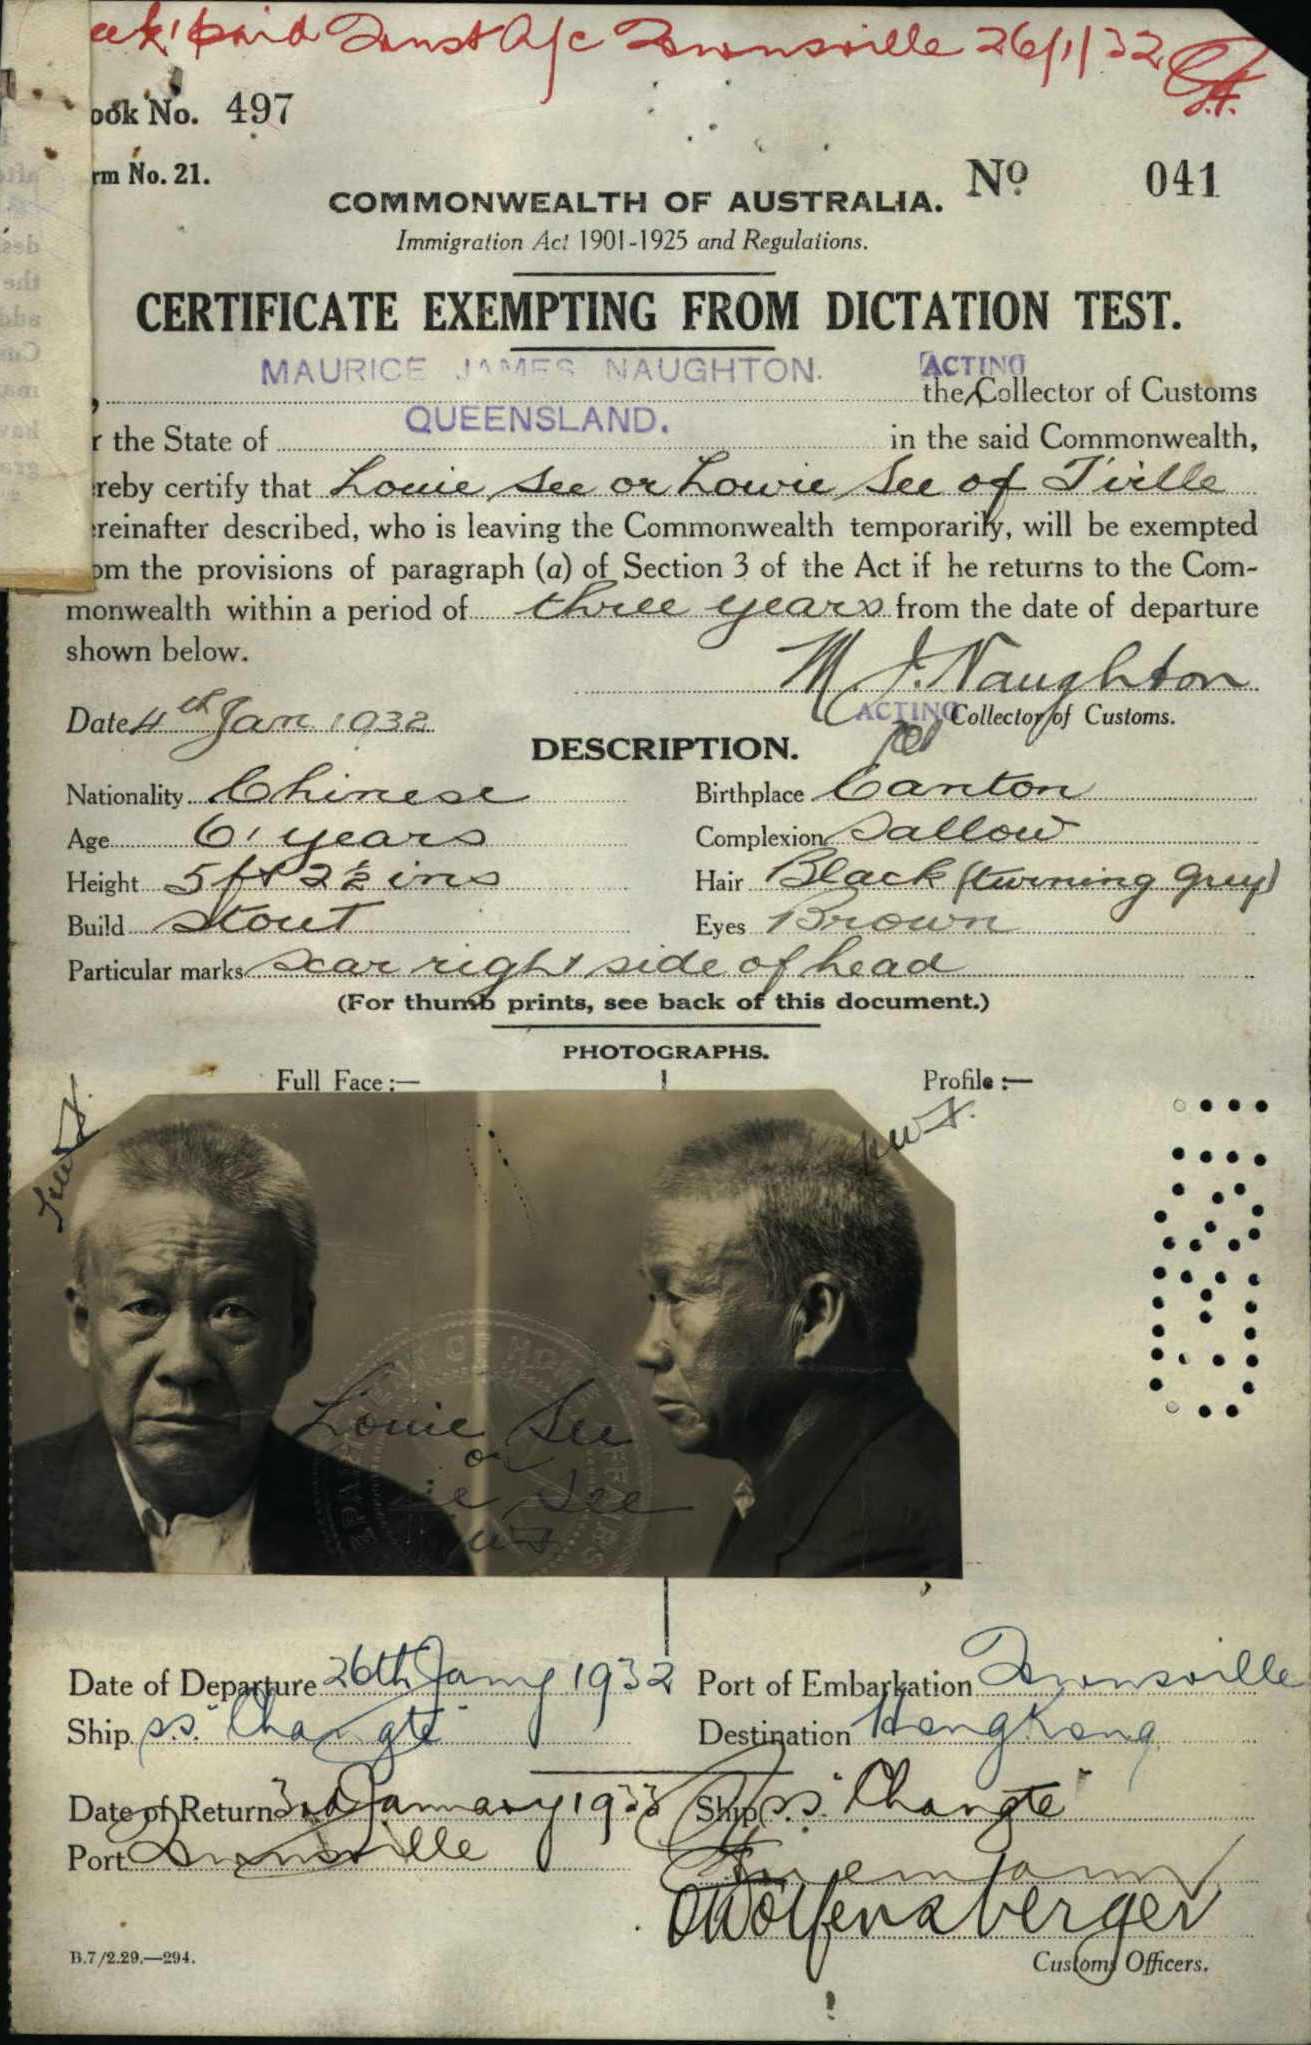 paid Trust A/c Townsville 26/1/32
ook No. 497
rm No. 21.
Nº 041
COMMONWEALTH OF AUSTRALIA.
Immigration Act 1901-1925 and Regulations.
CERTIFICATE EXEMPTING FROM DICTATION TEST.
MAURICE JAMES NAUGHTON. ACTING
, the Collector of Customs
QUEENSLAND.
r the State of in the said Commonwealth,
ereby certify that Louie See or Lowie See of T'ville
ereinafter described, who is leaving the Commonwealth temporarily, will be exempted
om the provisions of paragraph (a) of Section 3 of the Act if he returns to the Com-
monwealth within a period of three years from the date of departure
shown below.
M. J. Naughton
Date 4th Jan 1932
ACTING Collector of Customs.
DESCRIPTION.
Nationality Chinese Birthplace Canton
Age 61 years Complexion Sallow
Height 5 ft 2½ ins Hair Black (turning Grey)
Build Stout Eyes Brown
Particular marks Scar right side of head
(For thumb prints, see back of this document.)
PHOTOGRAPHS.
Full Face :— Profile :—
Louie See
or
ie See
Date of Departure 26th Jany 1932 Port of Embarkation Townsville
Ship s.s. "Changte" Destination HongKong
Date of Return 3rd January 1933 Ship s.s. "Changte"
Port Townsville
Wolfensberger
Customs Officers.
B.7/2.29.—294.